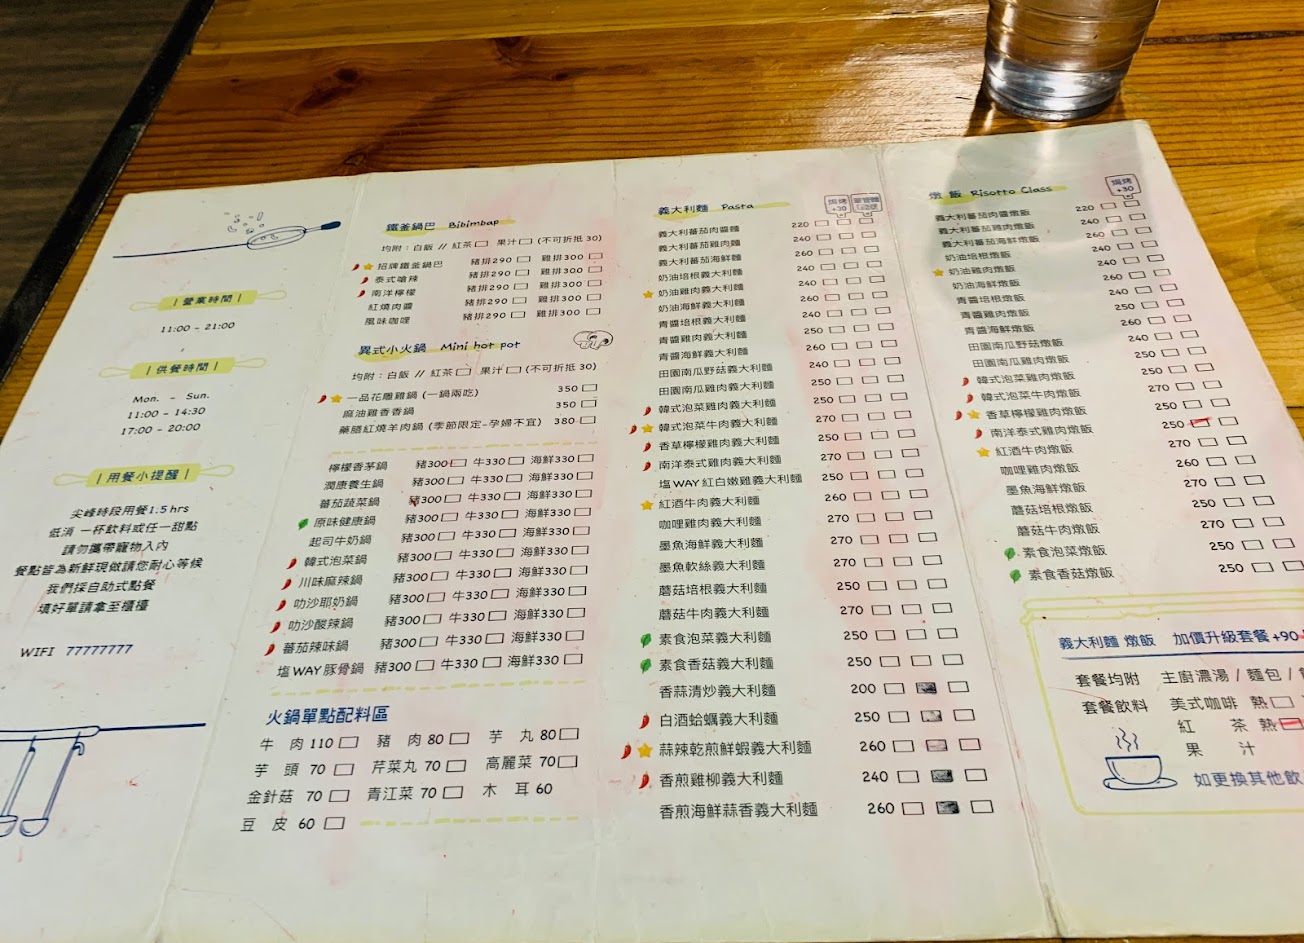 |營業時間|
11:00 - 21:00
|供餐時間|
Mon. - Sun.
11:00 - 14:30
17:00 - 20:00
|用餐小提醒|
尖峰時段用餐1.5 hrs
低消 一杯飲料或任一甜點
請勿攜帶寵物入內
餐點皆為新鮮現做請您耐心等候
我們採自助式點餐
填好單請拿至櫃檯
WIFI 77777777
鐵釜鍋巴 Bibimbap
均附：白飯 // 紅茶□ 果汁□ (不可折抵 30)
招牌鐵釜鍋巴 豬排290 □ 雞排300 □
泰式嗆辣 豬排290 □ 雞排300 □
南洋檸檬 豬排290 □ 雞排300 □
紅燒肉醬 豬排290 □ 雞排300 □
風味咖哩 豬排290 □ 雞排300 □
異式小火鍋 Mini hot pot
均附：白飯 // 紅茶□ 果汁□ (不可折抵 30)
一品花雕雞鍋 (一鍋兩吃) 350 □
麻油雞香香鍋 350 □
藥膳紅燒羊肉鍋 (季節限定-孕婦不宜) 380 □
檸檬香茅鍋 豬300□ 牛330□ 海鮮330□
潤康養生鍋 豬300□ 牛330□ 海鮮330□
蕃茄蔬菜鍋 豬300□ 牛330□ 海鮮330□
原味健康鍋 豬300□ 牛330□ 海鮮330□
起司牛奶鍋 豬300□ 牛330□ 海鮮330□
韓式泡菜鍋 豬300□ 牛330□ 海鮮330□
川味麻辣鍋 豬300□ 牛330□ 海鮮330□
叻沙耶奶鍋 豬300□ 牛330□ 海鮮330□
叻沙酸辣鍋 豬300□ 牛330□ 海鮮330□
蕃茄辣味鍋 豬300□ 牛330□ 海鮮330□
塩WAY豚骨鍋 豬300□ 牛330□ 海鮮330□
火鍋單點配料區
牛 肉 110 □ 豬 肉 80 □ 芋 丸 80 □
芋 頭 70 □ 芹菜丸 70 □ 高麗菜 70 □
金針菇 70 □ 青江菜 70 □ 木 耳 60
豆 皮 60 □
義大利麵 Pasta 焗烤+30
義大利蕃茄肉醬麵 220 □ □ □
義大利蕃茄雞肉麵 240 □ □ □
義大利蕃茄海鮮麵 260 □ □ □
奶油培根義大利麵 240 □ □ □
奶油雞肉義大利麵 240 □ □ □
奶油海鮮義大利麵 260 □ □ □
青醬培根義大利麵 240 □ □ □
青醬雞肉義大利麵 250 □ □ □
青醬海鮮義大利麵 260 □ □ □
田園南瓜野菇義大利麵 240 □ □ □
田園南瓜雞肉義大利麵 250 □ □ □
韓式泡菜雞肉義大利麵 250 □ □ □
韓式泡菜牛肉義大利麵 270 □ □ □
香草檸檬雞肉義大利麵 250 □ □ □
南洋泰式雞肉義大利麵 270 □ □ □
塩WAY紅白嫩雞義大利麵 250 □ □ □
紅酒牛肉義大利麵 260 □ □ □
咖哩雞肉義大利麵 270 □ □ □
墨魚海鮮義大利麵 270 □ □ □
墨魚軟絲義大利麵 270 □ □ □
蘑菇培根義大利麵 250 □ □ □
蘑菇牛肉義大利麵 270 □ □ □
素食泡菜義大利麵 250 □ □ □
素食香菇義大利麵 250 □ □ □
香蒜清炒義大利麵 200 □ ■ □
白酒蛤蠣義大利麵 250 □ ■ □
蒜辣乾煎鮮蝦義大利麵 260 □ ■ □
香煎雞柳義大利麵 240 □ ■ □
香煎海鮮蒜香義大利麵 260 □ ■ □
燉飯 Risotto Class 焗烤+30
義大利蕃茄肉醬燉飯 220 □ □
義大利蕃茄雞肉燉飯 240 □ □
義大利蕃茄海鮮燉飯 260 □ □
奶油培根燉飯 240 □ □
奶油雞肉燉飯 240 □ □
奶油海鮮燉飯 260 □ □
青醬培根燉飯 240 □ □
青醬雞肉燉飯 250 □ □
青醬海鮮燉飯 260 □ □
田園南瓜野菇燉飯 240 □ □
田園南瓜雞肉燉飯 250 □ □
韓式泡菜雞肉燉飯 250 □ □
韓式泡菜牛肉燉飯 270 □ □
香草檸檬雞肉燉飯 250 □ □
南洋泰式雞肉燉飯 250 □ □
紅酒牛肉燉飯 270 □ □
咖哩雞肉燉飯 260 □ □
墨魚海鮮燉飯 270 □ □
蘑菇培根燉飯 250 □ □
蘑菇牛肉燉飯 270 □ □
素食泡菜燉飯 250 □ □
素食香菇燉飯 250 □ □
義大利麵 燉飯 加價升級套餐 +90
套餐均附 主廚濃湯 / 麵包 /
套餐飲料 美式咖啡 熱□
紅 茶 熱□
果 汁
如更換其他飲